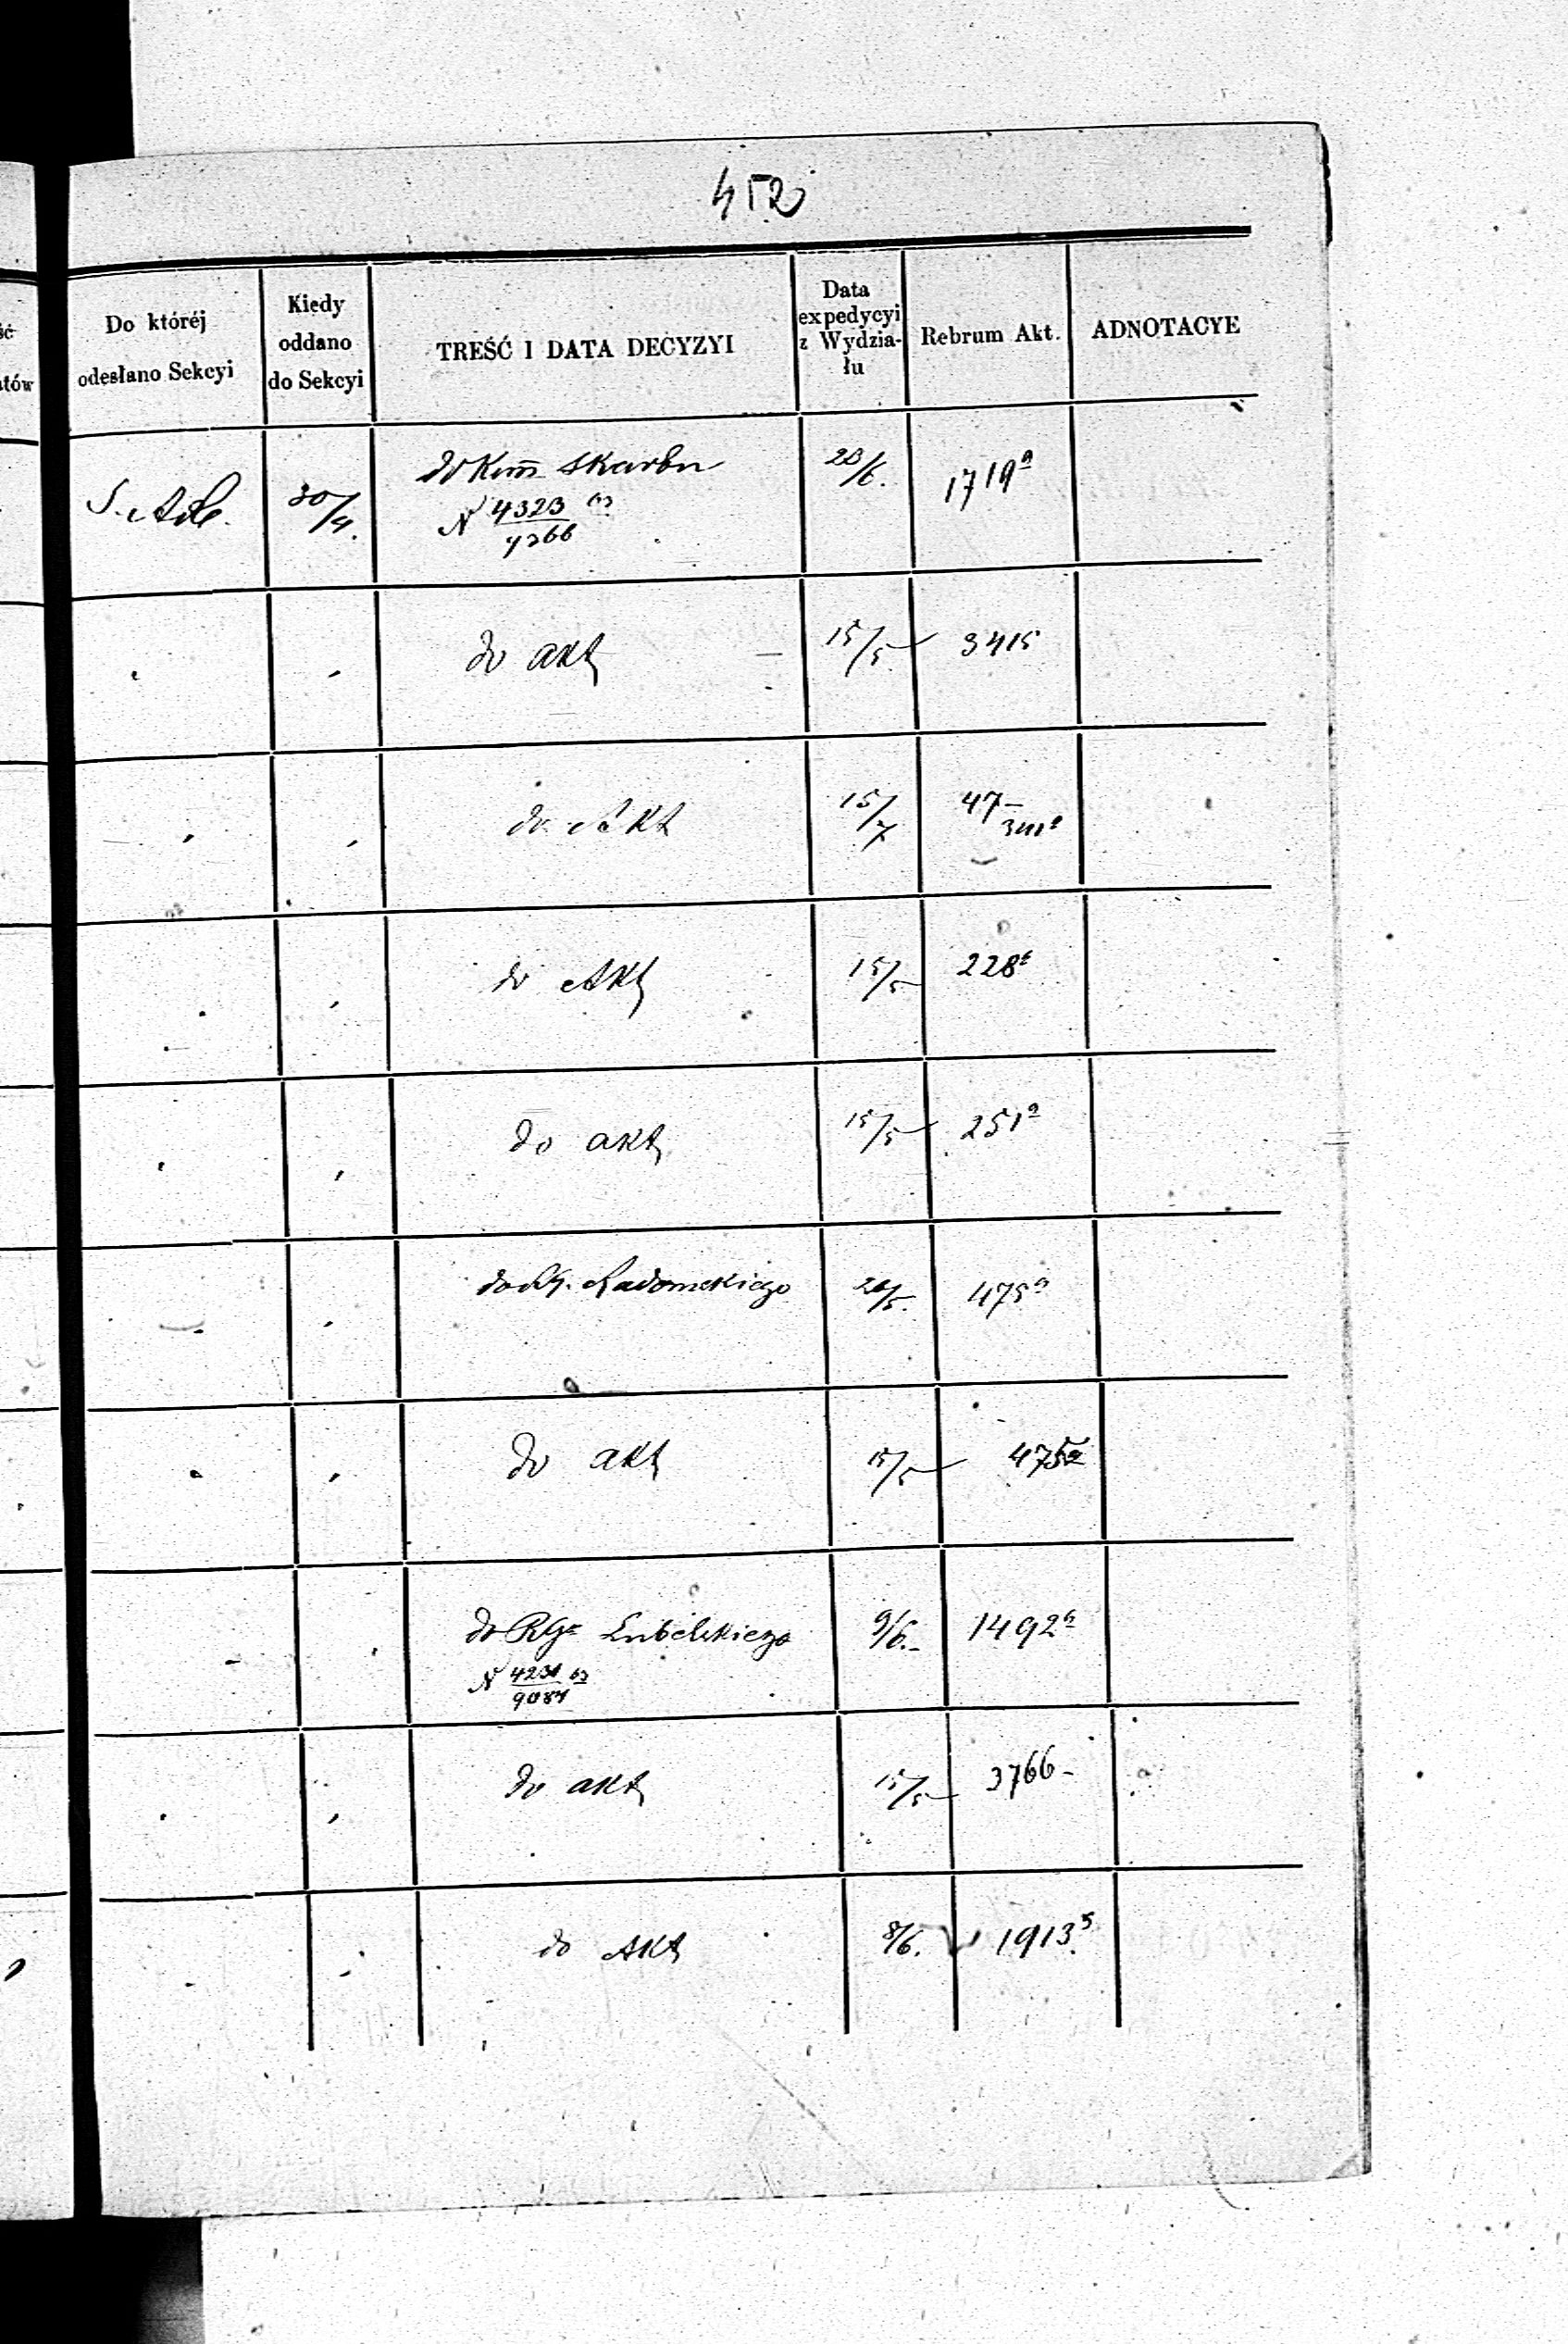 452
Do któréj odesłano Sekcyi
Kiedy oddano do Sekcyi
TREŚĆ I DATA DECYZYI
Data expedycyi z Wydzia-łu
Rebrum Akt.
ADNOTACYE
S. Adl. 30/4. do Kom̄ Skarbu 23/6. 1719ª
N 4323/7366 63
do akt 15/5 3415
do Akt 15/7 47-
do Akt 15/5 228
do akt 15/5 251ª
do RG. Radomskiego 26/5. 475ª
do akt 15/5 475a
do RGº Lubelskiego 9/6. 1492
N 4231/9084 63
do akt 15/5 3766-
do Akt 8/6. 1913⁵